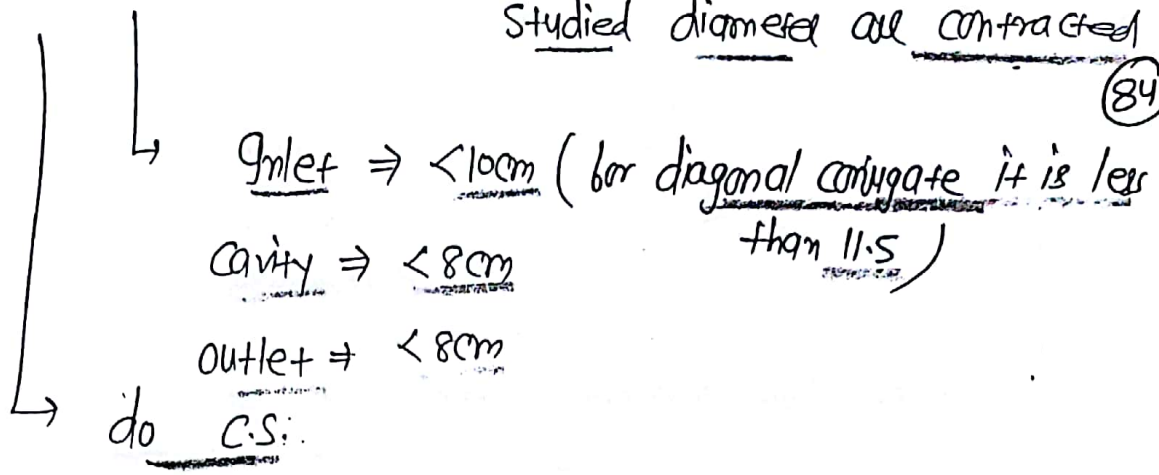 Studied diameter are contracted
84
Inlet ⇒ <10cm ( for diagonal conjugate it is less
than 11.5 )
Cavity ⇒ <8cm
outlet ⇒ <8cm
do C.S.